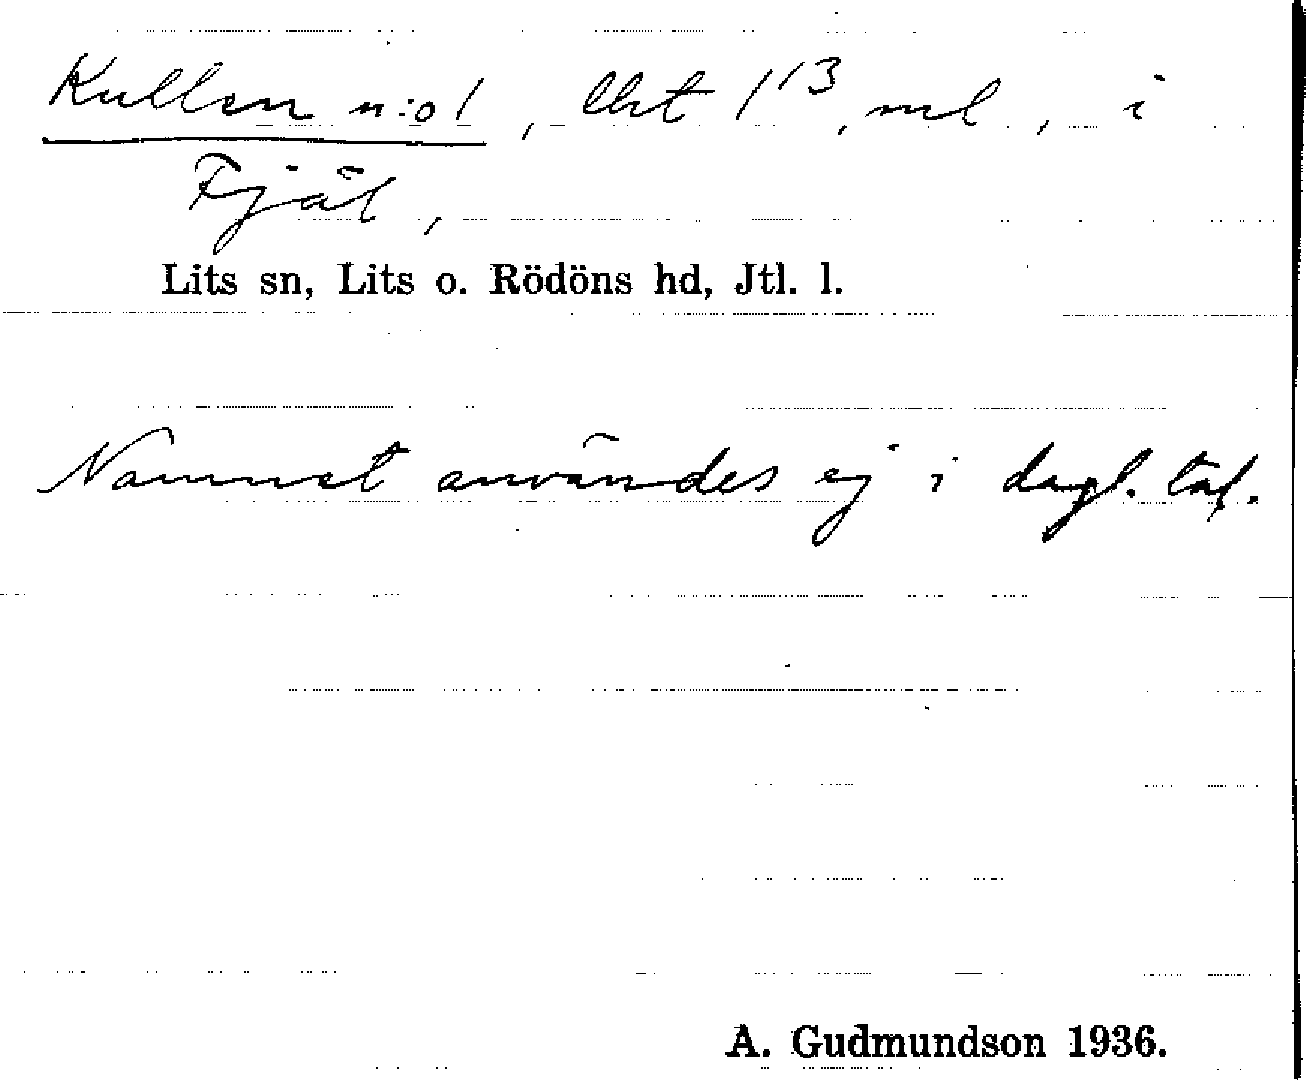 Kullen n:o 1, lht 1¹³, ml, i
Fjäl,
Lits sn, Lits o. Rödöns hd, Jtl. l.
Namnet användes ej i dagl. tal.
A. Gudmundson 1936.